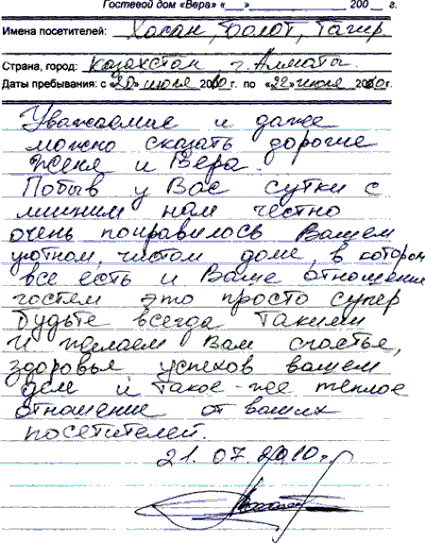 Гостевой дом «Вера» «___»______________ 200 __ г.
Имена посетителей: Хасан, Болот, Тагир
Страна, город: Казахстан, г. Алмата.
Даты пребывания: с «20» июля 2010г. по «22» июля 2010г.
Уважаемые и даже
можно сказать дорогие
Женя и Вера.
Побыв у Вас сутки с
миним нам честно
очень понравилось Вашем
уютном, чистом доме, в котором
все есть и Ваше отношение
гостем это просто супер
Будьте всегда такими
и желаем Вам счастье,
здоровья успехов вашем
деле и такое-же теплое
отношение от ваших
посетителей.
21.07.2010г.